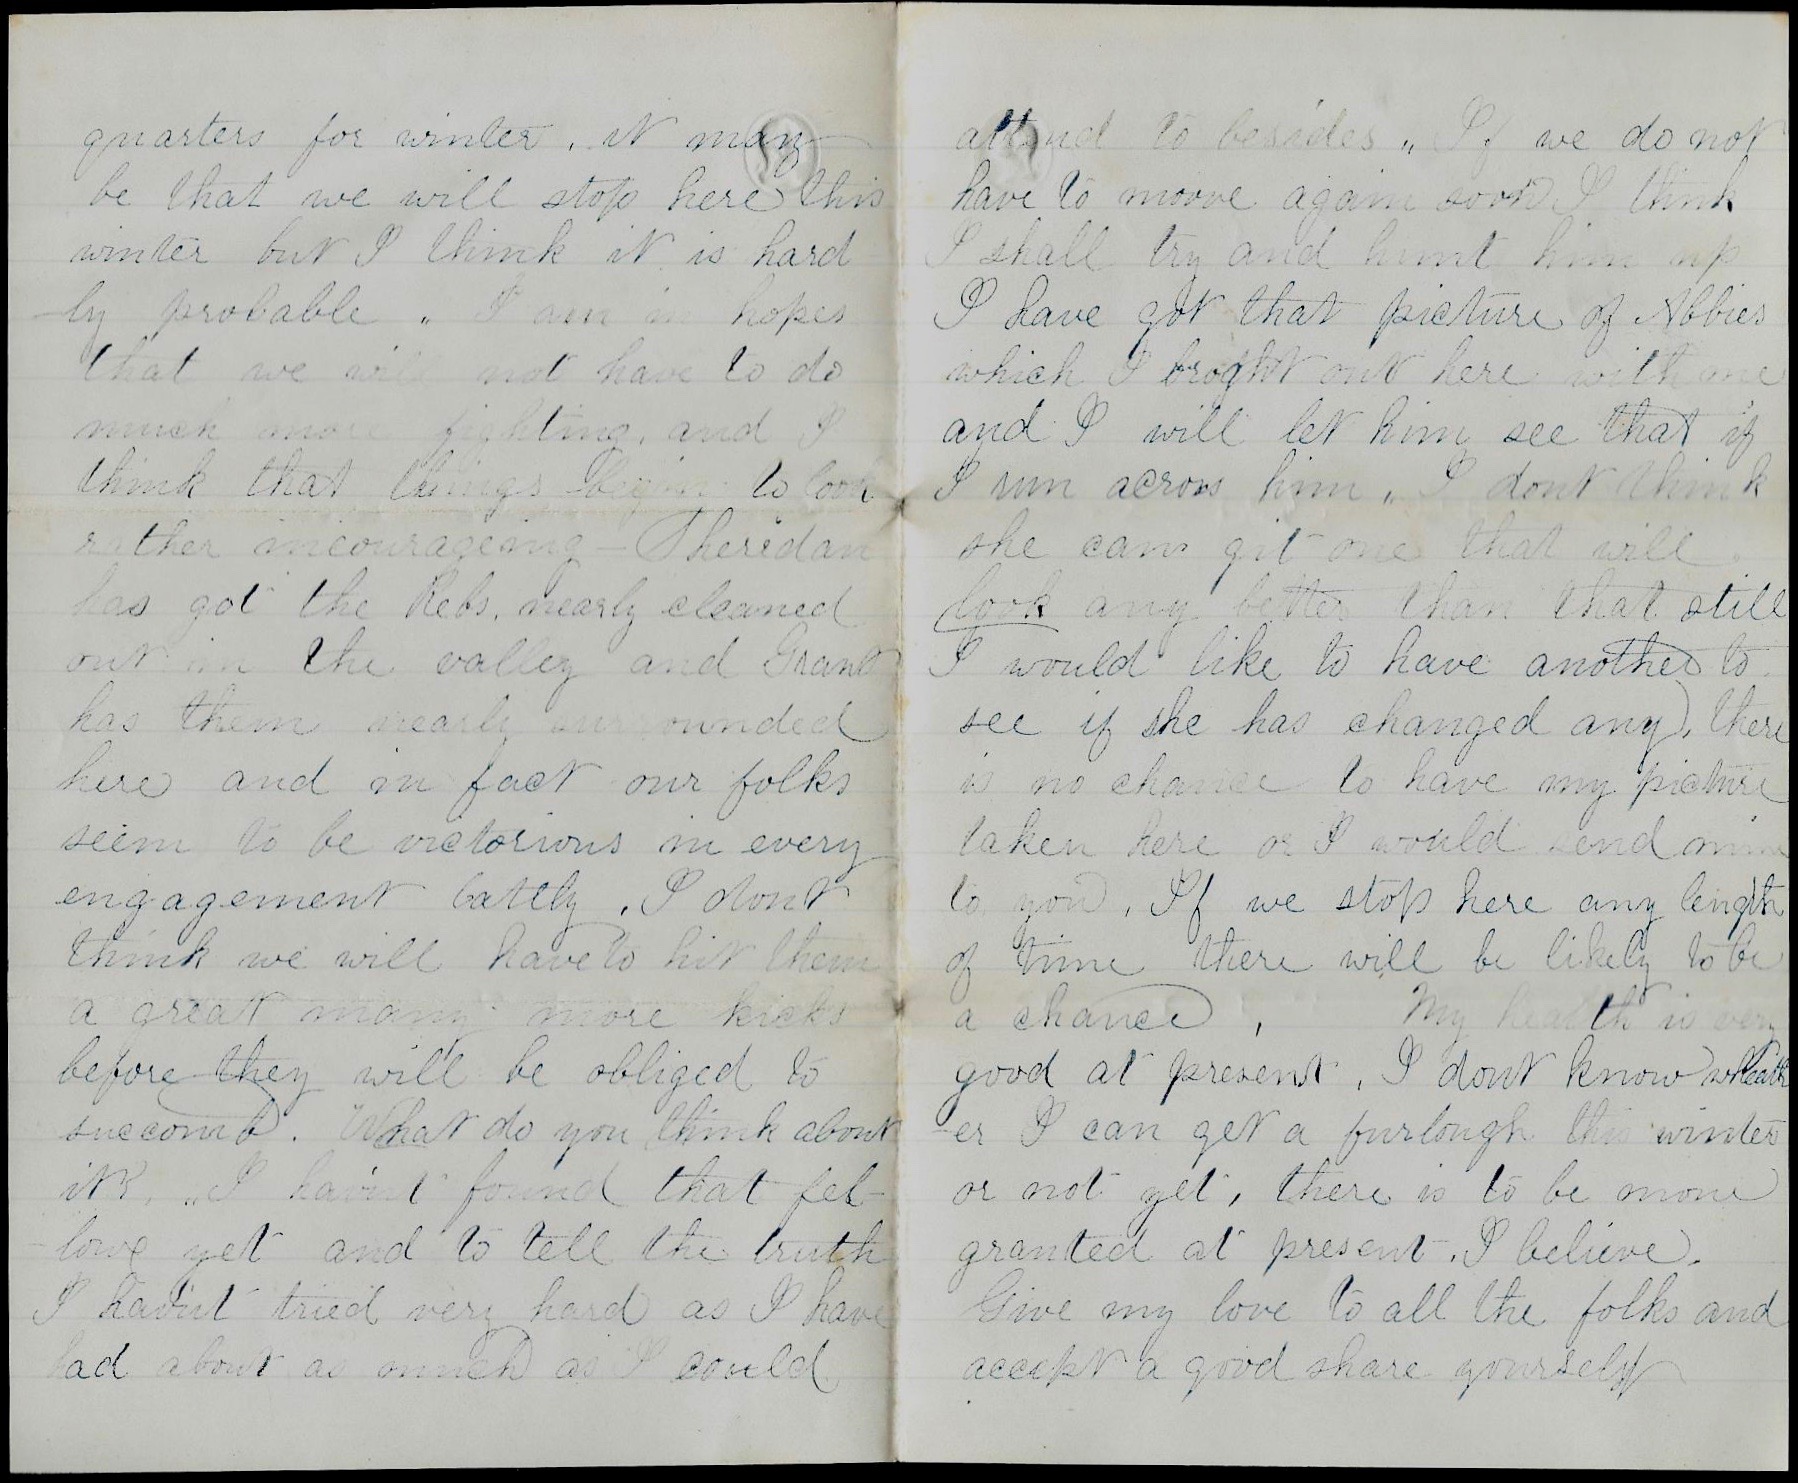 quarters for winter, it may
be that we will stop here this
winter but I think it is hard
-ly probable „ I am in hopes
that we will not have to do
much more fighting, and I
think that things begin to look
rather incourageing - Sheridan
has got the Rebs. nearly cleaned
out in the valley and Grant
has them nearly surrounded
here and in fact our folks
seem to be victorious in every
engagement latly, I dont
think we will have to hit them
a great many more kicks
before they will be obliged to
succomb. What do you think about
it? „ I hav'nt found that fel-
-low yet and to tell the truth
I hav'nt tried very hard as I have
had about as much as I could
attend to besides „ If we do not
have to moove again soon I think
I shall try and hunt him up
I have got that picture of Abbies
which I broght out here with me
and I will let him see that if
I run across him „ I dont think
she can git one that will
look any better than that still
I would like to have another to
see if she has changed any, there
is no chance to have my picture
taken here or I would send mine
to you, If we stop here any length
of time there will be likely to be
a chance, My health is very
good at present, I dont know wheath
-er I can get a furlough this winter
or not yet, there is to be none
granted at present, I believe.
Give my love to all the folks and
accept a good share yourself